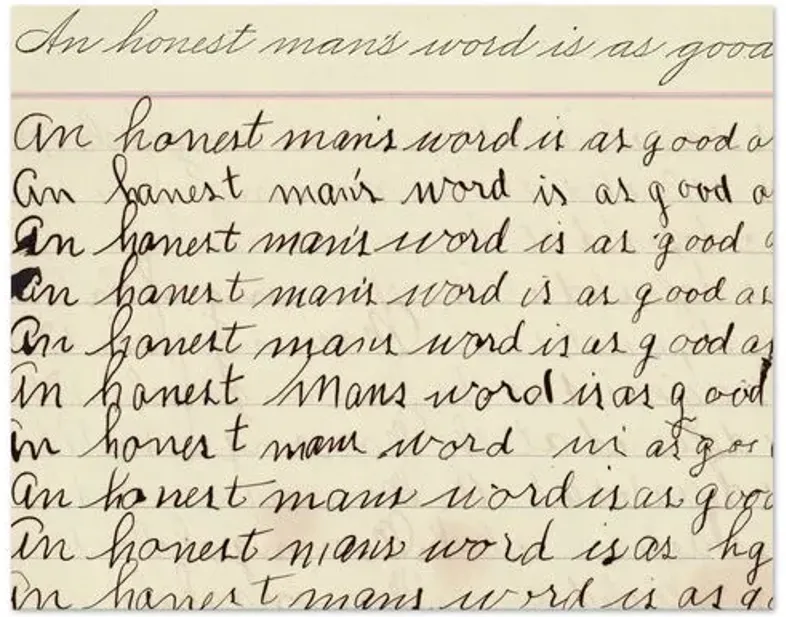 An honest man's word is as good
An honest man's word is as good a
An hanest man's word is as good a
An honest man's word is as good
An hanest man's word is as good as
An honest mans word is as good as
An honest Mans word is as good
An honest mans word as goo
An honest mans word is as good
An honest mans word is as hg
An hanest mans word is as g